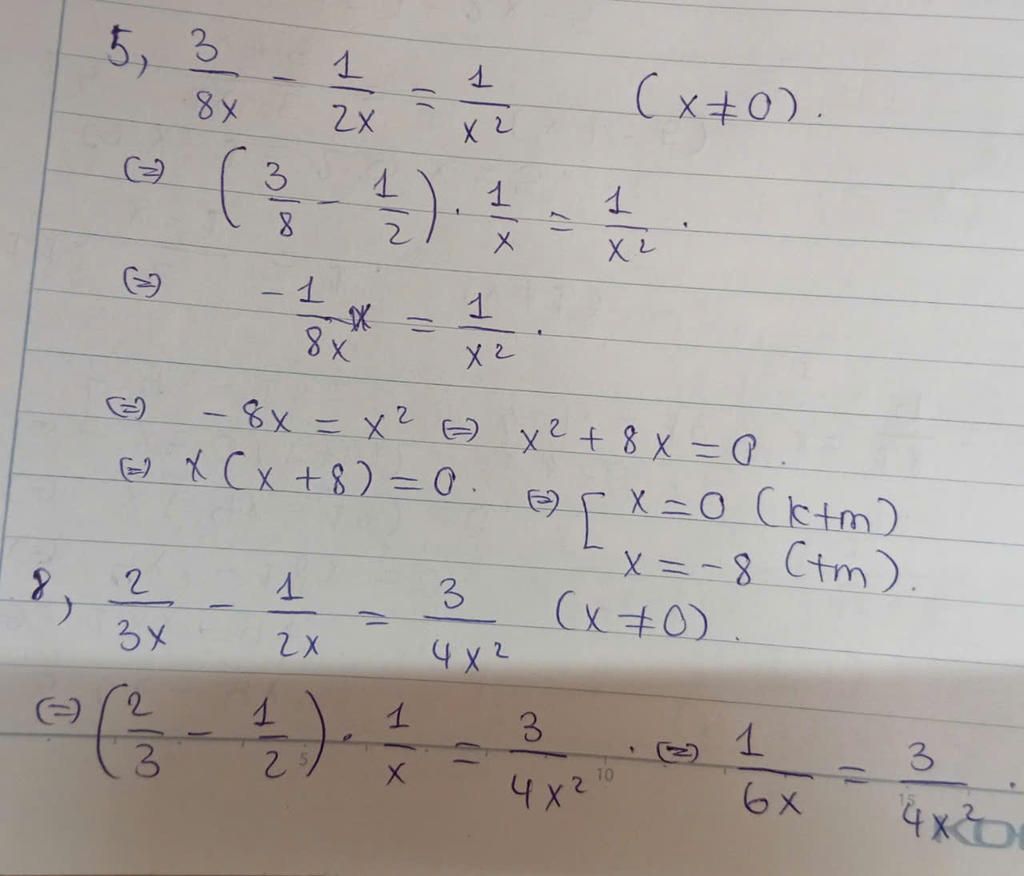 5, 3/8x - 1/2x = 1/x² (x≠0).
(=) (3/8 - 1/2) . 1/x = 1/x² .
(=) -1/8x = 1/x² .
(=) -8x = x² (=) x² + 8x = 0.
(=) x(x+8) = 0. (=) [ x = 0 (k+m)
x = -8 (+m).
8, 2/3x - 1/2x = 3/4x² (x≠0).
(=) (2/3 - 1/2) . 1/x = 3/4x² . (=) 1/6x = 3/4x² .
5 10 15